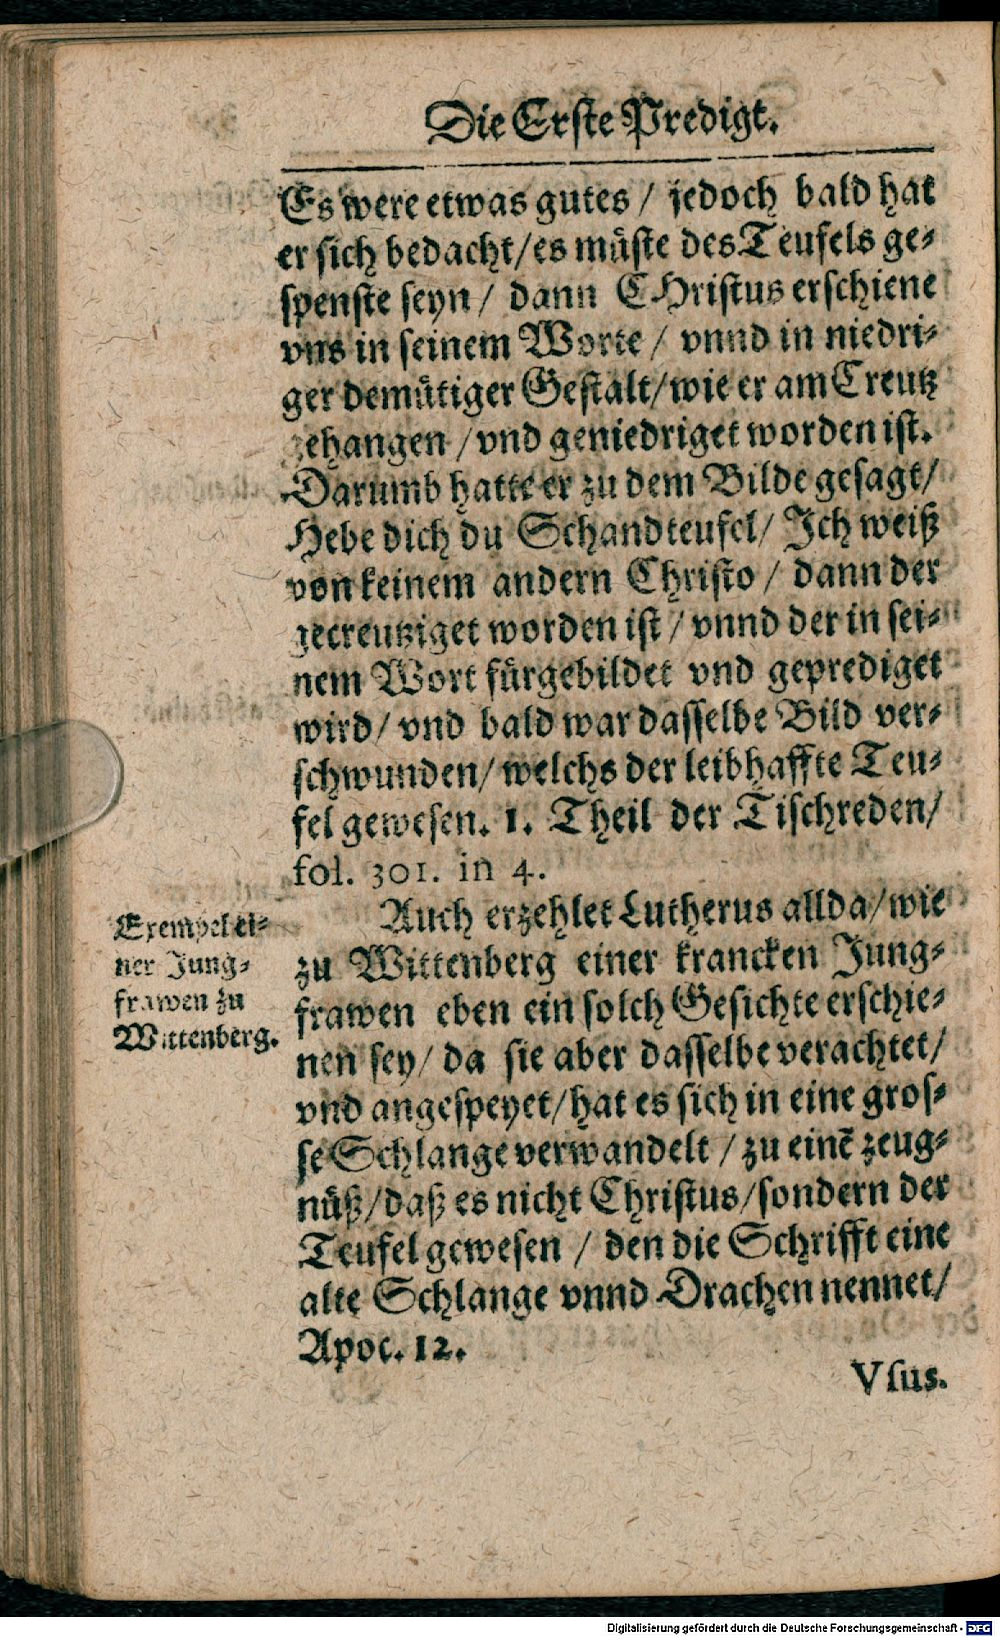 Die Erste Predigt.
Es were etwas gutes / jedoch bald hat
er sich bedacht/es müste des Teufels ge-
spenste seyn / dann CHristus erschiene
vns in seinem Worte / vnnd in niedri-
ger demütiger Gestalt/wie er am Creutz
gehangen /vnd geniedriget worden ist.
Darumb hatte er zu dem Bilde gesagt/
Hebe dich du Schandteufel/ Ich weiß
von keinem andern Christo / dann der
gecreutziget worden ist / vnnd der in sei-
nem Wort fürgebildet vnd geprediget
wird/ vnd bald war dasselbe Bild ver-
schwunden/ welchs der leibhaffte Teu-
fel gewesen. 1. Theil der Tischreden/
fol. 301. in 4.
Exempel ei-
ner Jung-
frawen zu
Wittenberg.
Auch erzehlet Lutherus allda/wie
zu Wittenberg einer krancken Jung-
frawen eben ein solch Gesichte erschie-
nen sey/ da sie aber dasselbe verachtet/
vnd angespeyet/hat es sich in eine gros-
se Schlange verwandelt / zu einē zeug-
nüß/daß es nicht Christus/sondern der
Teufel gewesen / den die Schrifft eine
alte Schlange vnnd Drachen nennet/
Apoc. 12.
Vsus.
Digitalisierung gefördert durch die Deutsche Forschungsgemeinschaft - DFG